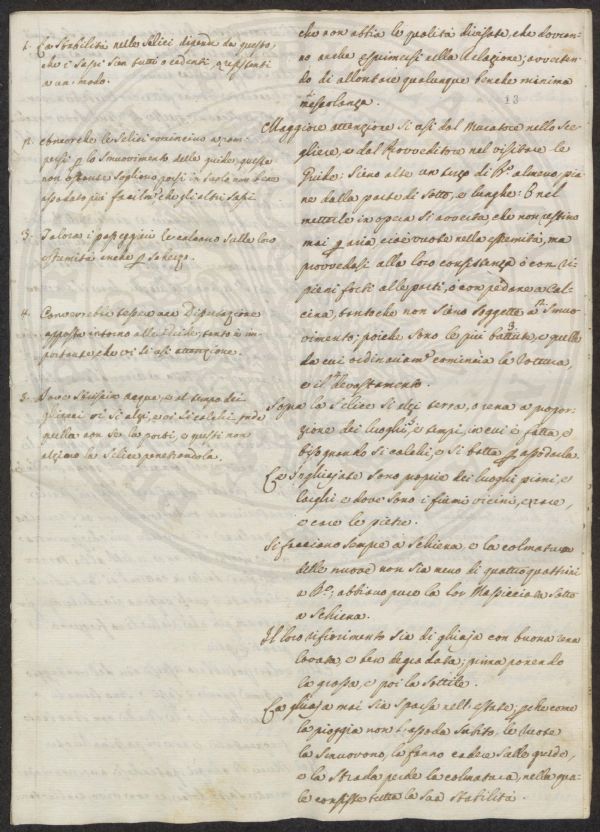 1. La Stabilità nelle Selici dipende da questo,
che i Sassi sian tutti o cedenti, o resistenti
a un modo.
2. ancorche le Selici comincino a rom-
persi p lo Smuovimento delle guide, queste
non ostante sogliono porsi in
assodato più facilm.e che gli altri Sassi.
3. Talora i passeggieri le calcano sulle loro
estremità anche p scherzo.
4. Converrebbe tessere una Disputazione
apposta intorno alle Guide; tanto è im-
portante che vi si usi attenzione.
5. Dove Strusia acqua, e al tempo dei
ghiacci vi si alzi, e vi si calchi, onde
quella non se la porti, e questi non
alzino la Selice penetrandola.
che non abbia le qualità divisate, che dovran-
no anche esprimersi nella Relazione; avverten-
do di allontare qualunque benche minima
mescolanza.
13
Maggiore attenzione si usi dal Muratore nello Sce-
gliere, e dal Provveditore nel visitare le
Guide: Sieno alte un terzo di B.o almeno, pia-
ne dalla parte di Sotto, e lunghe: E nel
metterle in opera si avverta, che non restino
mai p aria, cioè vuote nella estremità, ma
provvedasi alla loro consistenza o con ri-
pieni forti alle parti, o con pedane a Cal-
cina, tantoche non sieno soggette a Smuo-
vimento: poiche sono le più battute, e quelle
3.
da cui ordinariam.e comincia la Rottura,
e il devastamento.
Sopra la Selice si alzi terra, o rena a propor-
zione dei luoghi, e tempi, in cui è fatta, e
5.
bisognando si calchi, e si batta p assodarla.
Le Inghiajate sono proprie dei luoghi piani, e
larghi, e dove sono i fiumi vicini, e rare,
e care le pietre.
Si facciano sempre a Schiena, e la colmatura
delle nuove non sia meno di quattro quattrini
a B.o; abbiano pure la lor Massicciata sotto
a Schiena.
Il loro rifiorimento sia di ghiaja con buona rena
lavata, e ben degradata; prima ponendo
la grossa, e poi la Sottile.
La ghiaja mai sia sparsa nell'estate; pche come
la pioggia non l'assoda subito, le Ruote
la smuovono, la fanno cadere sulle guide,
e la Strada perde la colmatura, nella qua-
le consiste tutta la sua stabilità.